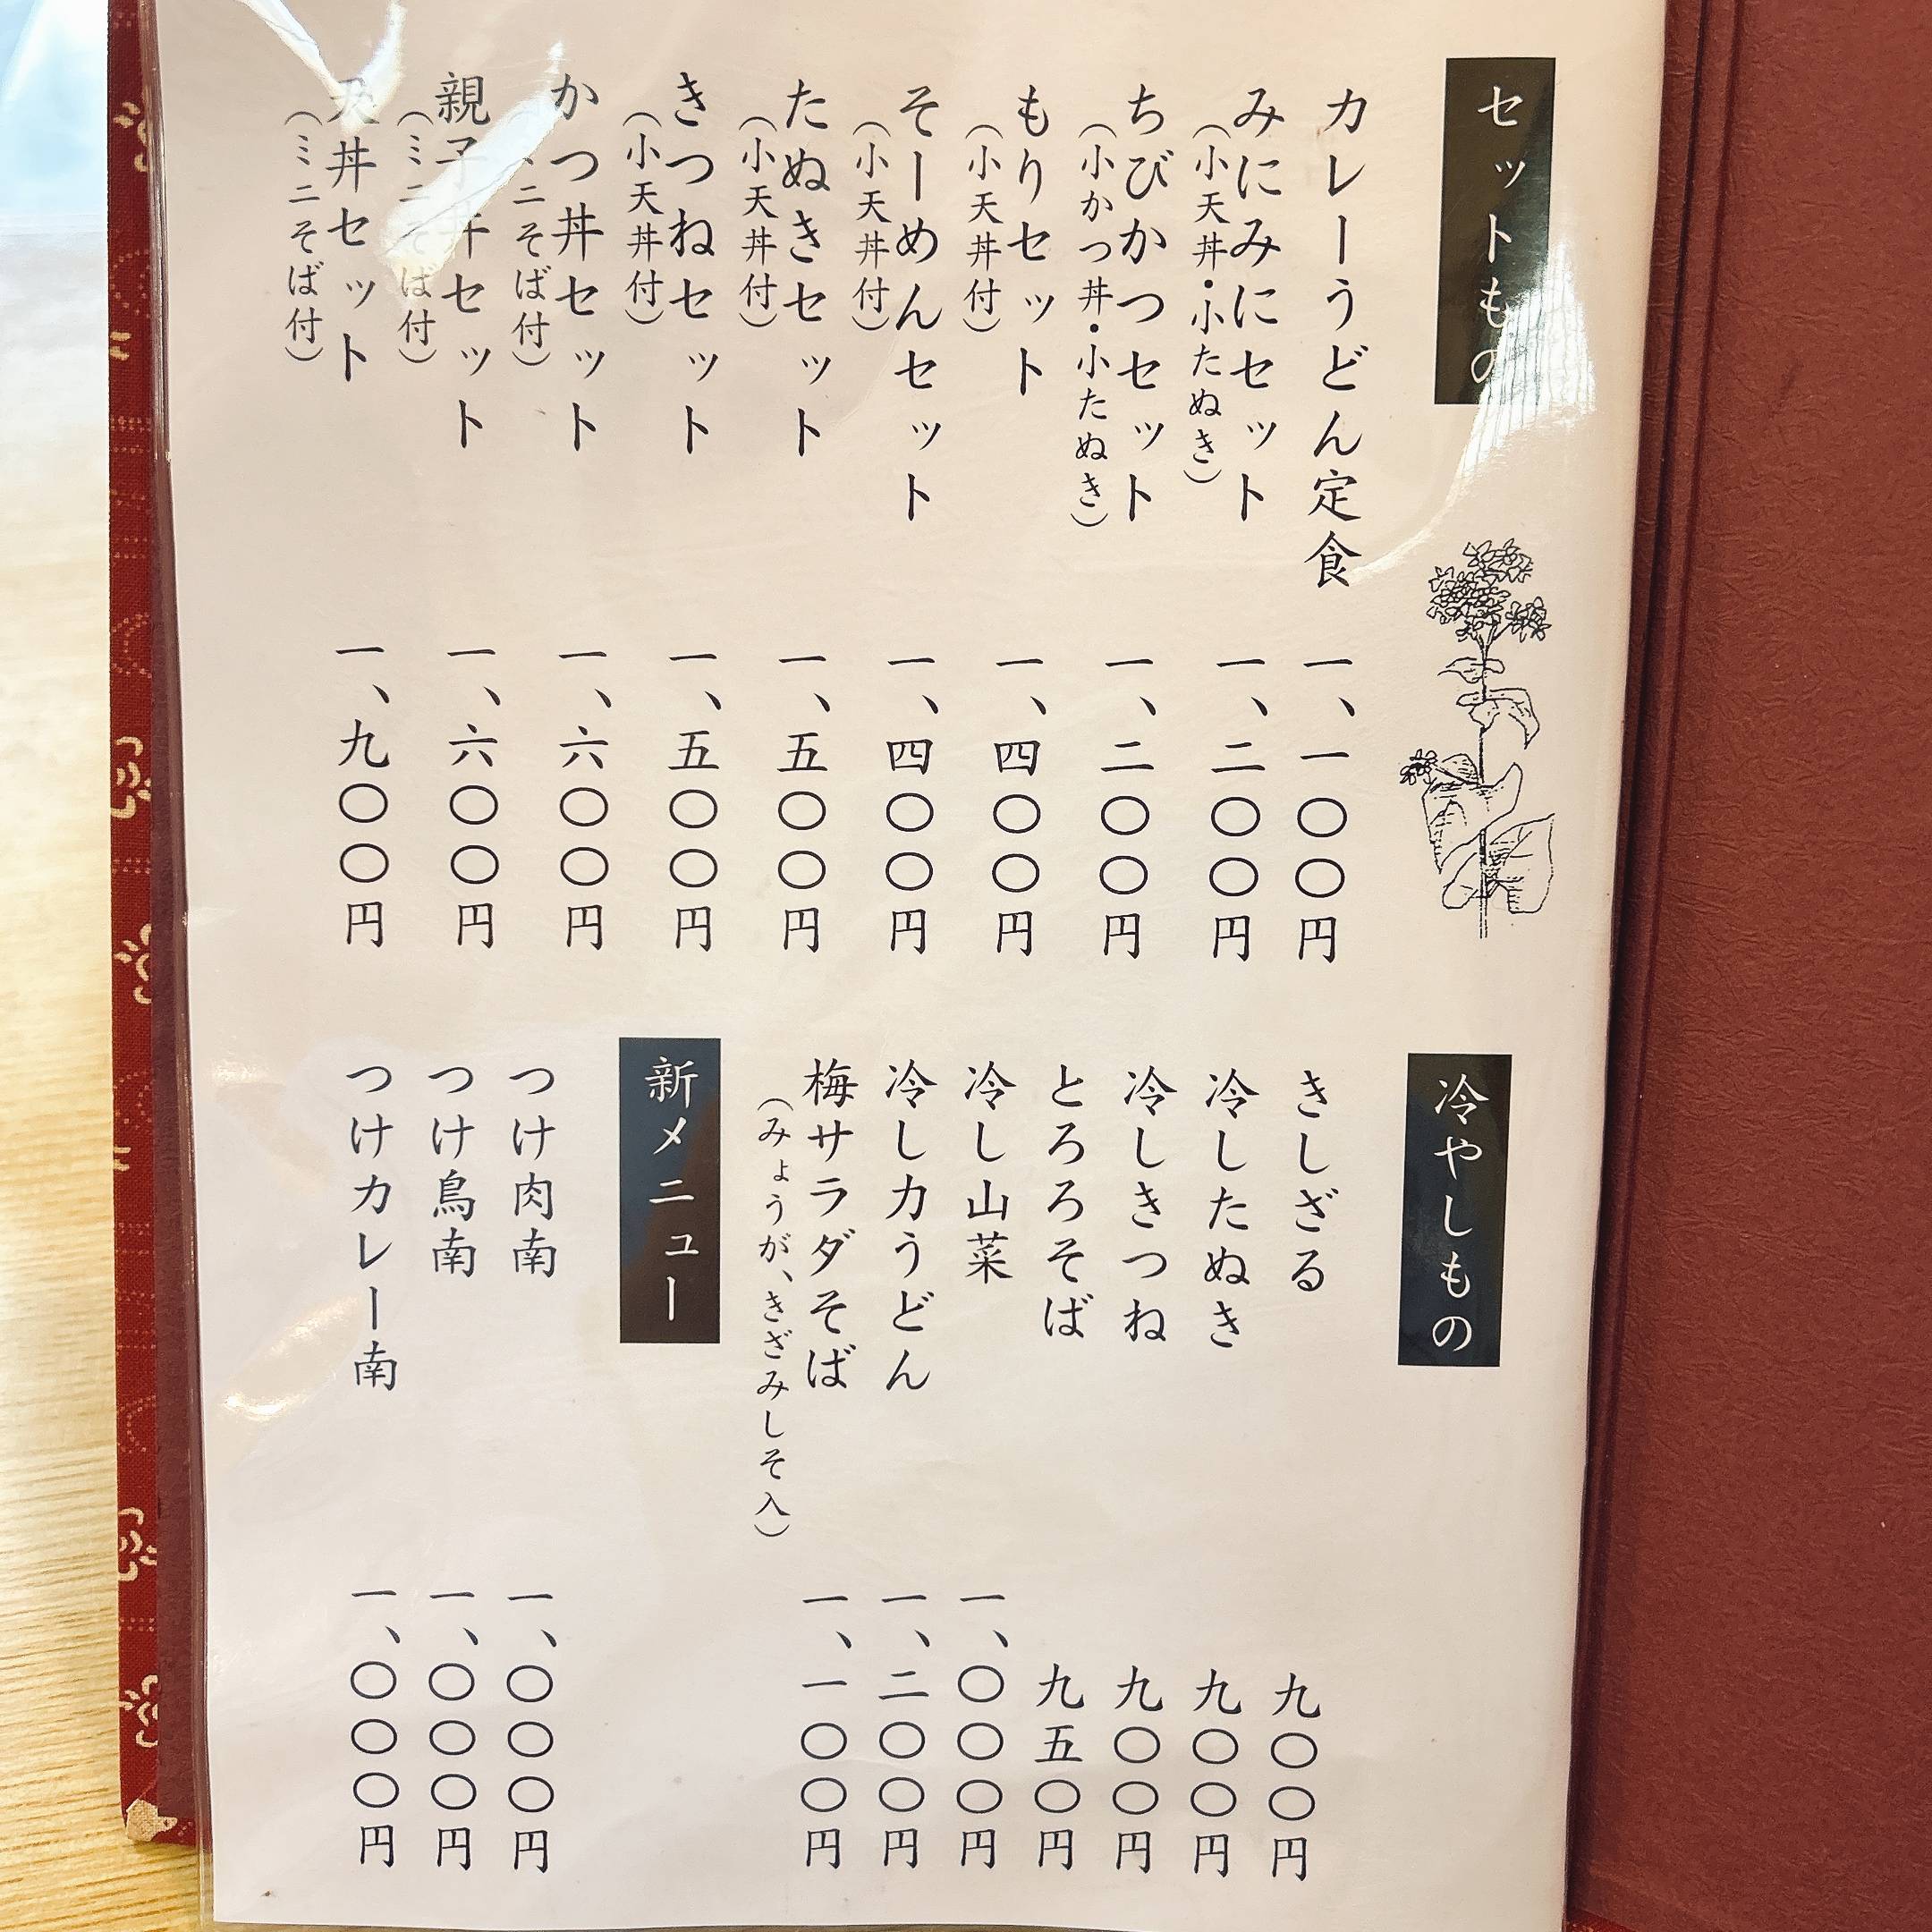 セットもの
カレーうどん定食 一、一〇〇円
みにみにセット 一、二〇〇円
（小天丼・小たぬき）
ちびかつセット 一、二〇〇円
（小かつ丼・小たぬき）
もりセット 一、四〇〇円
（小天丼付）
そーめんセット 一、四〇〇円
（小天丼付）
たぬきセット 一、五〇〇円
（小天丼付）
きつねセット 一、五〇〇円
（小天丼付）
かつ丼セット 一、六〇〇円
（ミニそば付）
親子丼セット 一、六〇〇円
（ミニそば付）
天丼セット 一、九〇〇円
（ミニそば付）
冷やしもの
きしざる 九〇〇円
冷したぬき 九〇〇円
冷しきつね 九〇〇円
とろろそば 九五〇円
冷し山菜 一、〇〇〇円
冷し力うどん 一、二〇〇円
梅サラダそば 一、一〇〇円
（みょうが、きざみしそ入）
新メニュー
つけ肉南 一、〇〇〇円
つけ鳥南 一、〇〇〇円
つけカレー南 一、〇〇〇円